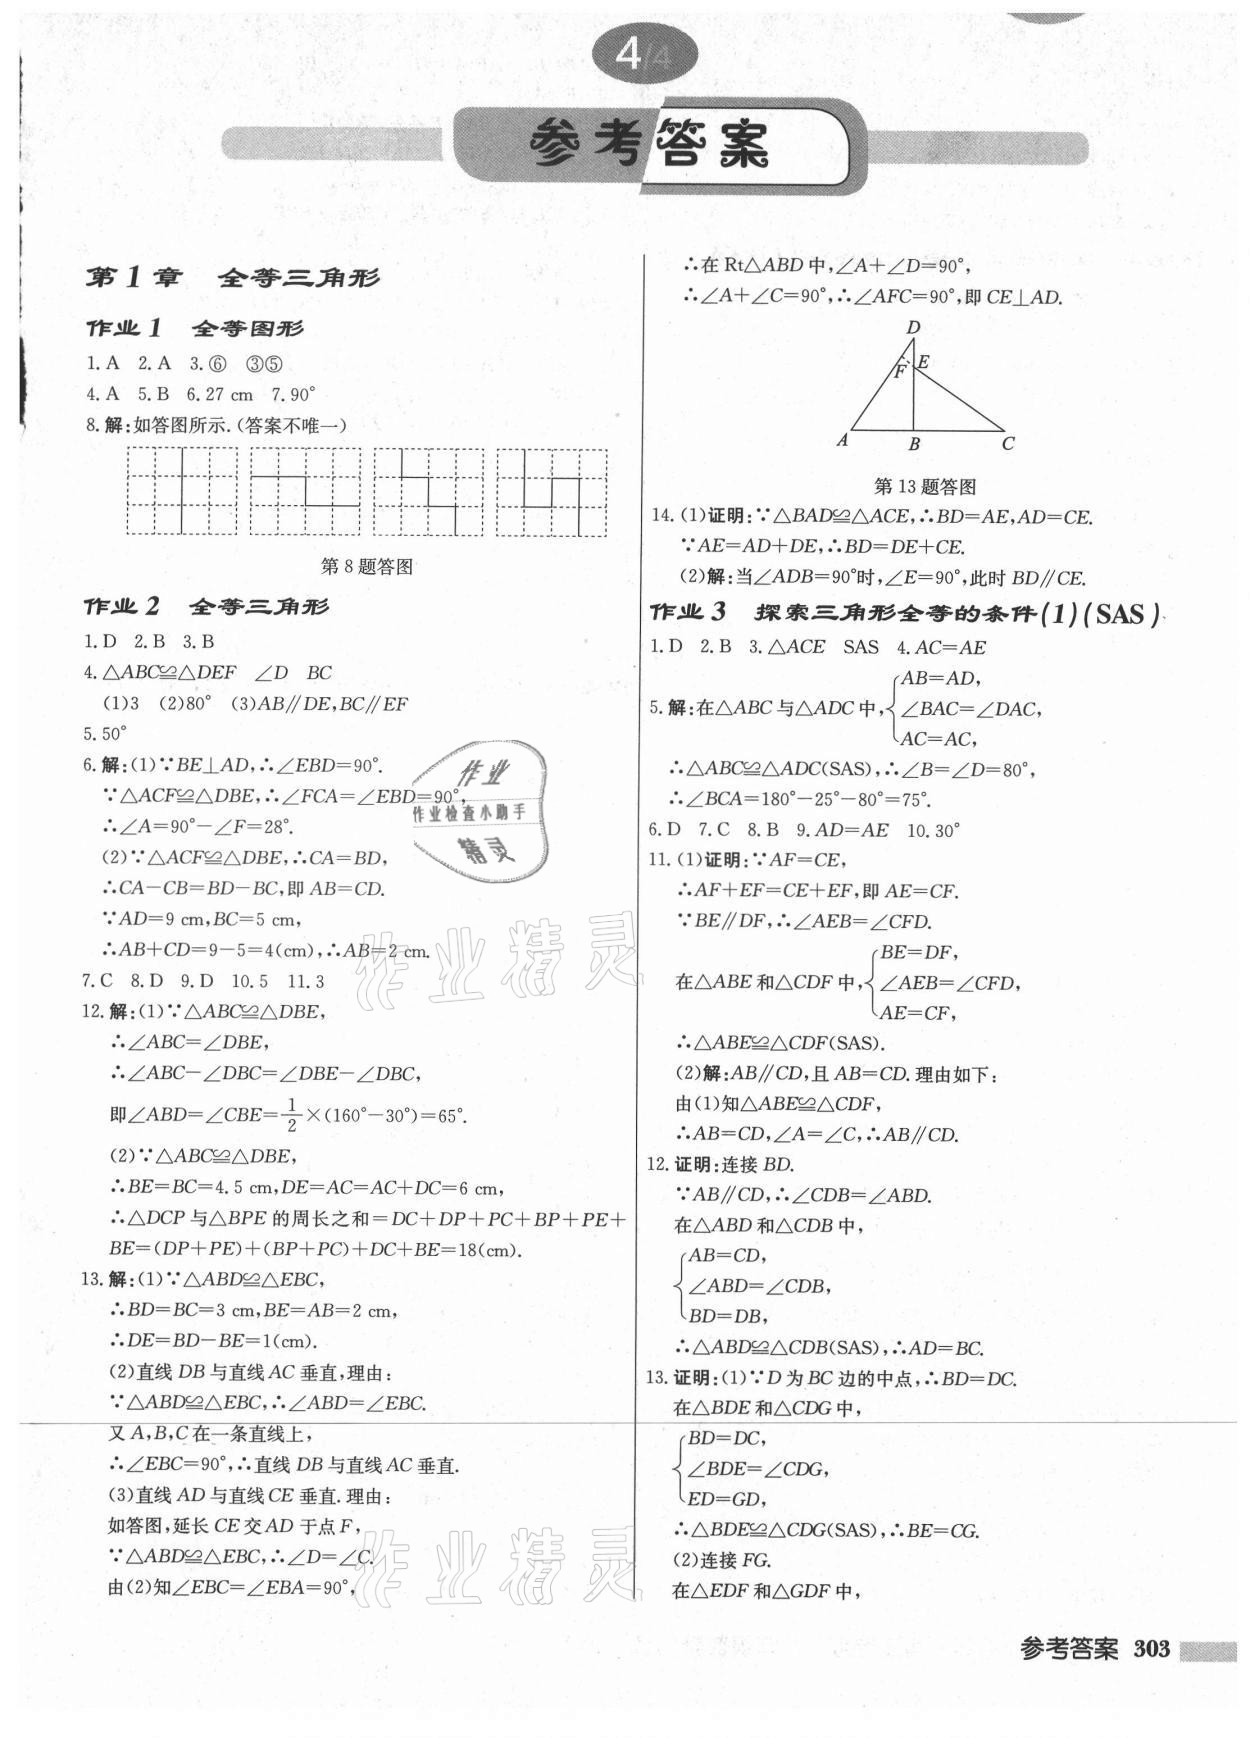 4/4
参考答案
第1章 全等三角形
作业1 全等图形
1.A 2.A 3.⑥ ③⑤
4.A 5.B 6.27 cm 7.90°
8.解:如答图所示.(答案不唯一)
第8题答图
作业2 全等三角形
1.D 2.B 3.B
4.△ABC≌△DEF ∠D BC
(1)3 (2)80° (3)AB∥DE,BC∥EF
5.50°
6.解:(1)∵BE⊥AD,∴∠EBD=90°.
∵△ACF≌△DBE,∴∠FCA=∠EBD=90°,
∴∠A=90°-∠F=28°.
(2)∵△ACF≌△DBE,∴CA=BD,
∴CA-CB=BD-BC,即AB=CD.
∵AD=9 cm,BC=5 cm,
∴AB+CD=9-5=4(cm),∴AB=2 cm.
7.C 8.D 9.D 10.5 11.3
12.解:(1)∵△ABC≌△DBE,
∴∠ABC=∠DBE,
∴∠ABC-∠DBC=∠DBE-∠DBC,
即∠ABD=∠CBE=1/2×(160°-30°)=65°.
(2)∵△ABC≌△DBE,
∴BE=BC=4.5 cm,DE=AC=AC+DC=6 cm,
∴△DCP与△BPE的周长之和=DC+DP+PC+BP+PE+
BE=(DP+PE)+(BP+PC)+DC+BE=18(cm).
13.解:(1)∵△ABD≌△EBC,
∴BD=BC=3 cm,BE=AB=2 cm,
∴DE=BD-BE=1(cm).
(2)直线DB与直线AC垂直,理由:
∵△ABD≌△EBC,∴∠ABD=∠EBC.
又A,B,C在一条直线上,
∴∠EBC=90°,∴直线DB与直线AC垂直.
(3)直线AD与直线CE垂直.理由:
如答图,延长CE交AD于点F,
∵△ABD≌△EBC,∴∠D=∠C.
由(2)知∠EBC=∠EBA=90°,
∴在Rt△ABD中,∠A+∠D=90°,
∴∠A+∠C=90°,∴∠AFC=90°,即CE⊥AD.
D
F E
A B C
第13题答图
14.(1)证明:∵△BAD≌△ACE,∴BD=AE,AD=CE.
∵AE=AD+DE,∴BD=DE+CE.
(2)解:当∠ADB=90°时,∠E=90°,此时BD∥CE.
作业3 探索三角形全等的条件(1)(SAS)
1.D 2.B 3.△ACE SAS 4.AC=AE
AB=AD,
5.解:在△ABC与△ADC中,∠BAC=∠DAC,
AC=AC,
∴△ABC≌△ADC(SAS),∴∠B=∠D=80°,
∴∠BCA=180°-25°-80°=75°.
6.D 7.C 8.B 9.AD=AE 10.30°
11.(1)证明:∵AF=CE,
∴AF+EF=CE+EF,即AE=CF.
∵BE∥DF,∴∠AEB=∠CFD.
BE=DF,
在△ABE和△CDF中,∠AEB=∠CFD,
AE=CF,
∴△ABE≌△CDF(SAS).
(2)解:AB∥CD,且AB=CD.理由如下:
由(1)知△ABE≌△CDF,
∴AB=CD,∠A=∠C,∴AB∥CD.
12.证明:连接BD.
∵AB∥CD,∴∠CDB=∠ABD.
在△ABD和△CDB中,
AB=CD,
∠ABD=∠CDB,
BD=DB,
∴△ABD≌△CDB(SAS),∴AD=BC.
13.证明:(1)∵D为BC边的中点,∴BD=DC.
在△BDE和△CDG中,
BD=DC,
∠BDE=∠CDG,
ED=GD,
∴△BDE≌△CDG(SAS),∴BE=CG.
(2)连接FG.
在△EDF和△GDF中,
作业
作业检查小助手
精灵
作业精灵
作业精灵
参考答案 303